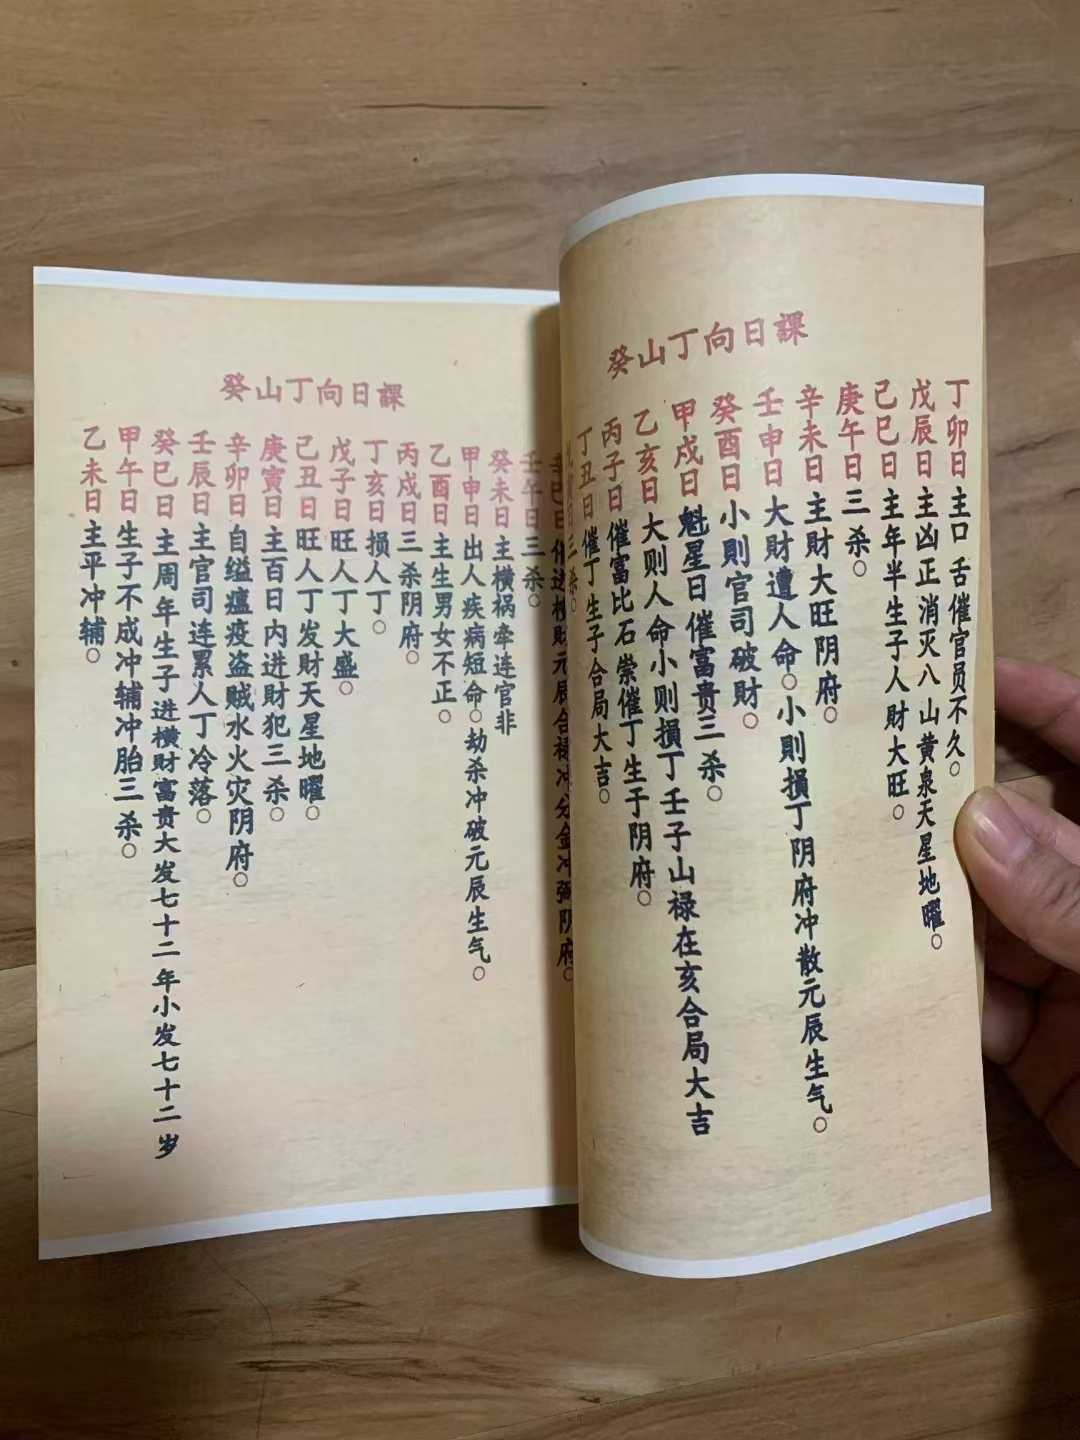 癸山丁向日課
丁卯日主口舌催官员不久○
戊辰日主凶正消灭八山黄泉天星地曜○
己巳日主年半生子人財大旺○
庚午日三杀○
辛未日主財大旺阴府○
壬申日大財遭人命○小則損丁阴府冲散元辰生气○
癸酉日小則官司破財○
甲戌日魁星日催富贵三杀○
乙亥日大则人命小则損丁壬子山禄在亥合局大吉
丙子日催富比石崇催丁生于阴府○
丁丑日催丁生子合局大吉○
寅日三杀○
癸山丁向日課
辛巳日催进横財元辰合禄冲分金冲弱阴府○
壬午日三杀○
癸未日主横祸牵连官非
甲申日出人疾病短命○劫杀冲破元辰生气○
乙酉日主生男女不正○
丙戌日三杀阴府○
丁亥日損人丁○
戊子日旺人丁大盛○
己丑日旺人丁发財天星地曜○
庚寅日主百日内进財犯三杀○
辛卯日自缢瘟疫盗贼水火灾阴府○
壬辰日主官司连累人丁冷落○
癸巳日主周年生子进横財富贵大发七十二年小发七十二岁
甲午日生子不成冲辅冲胎三杀○
乙未日主平冲辅○